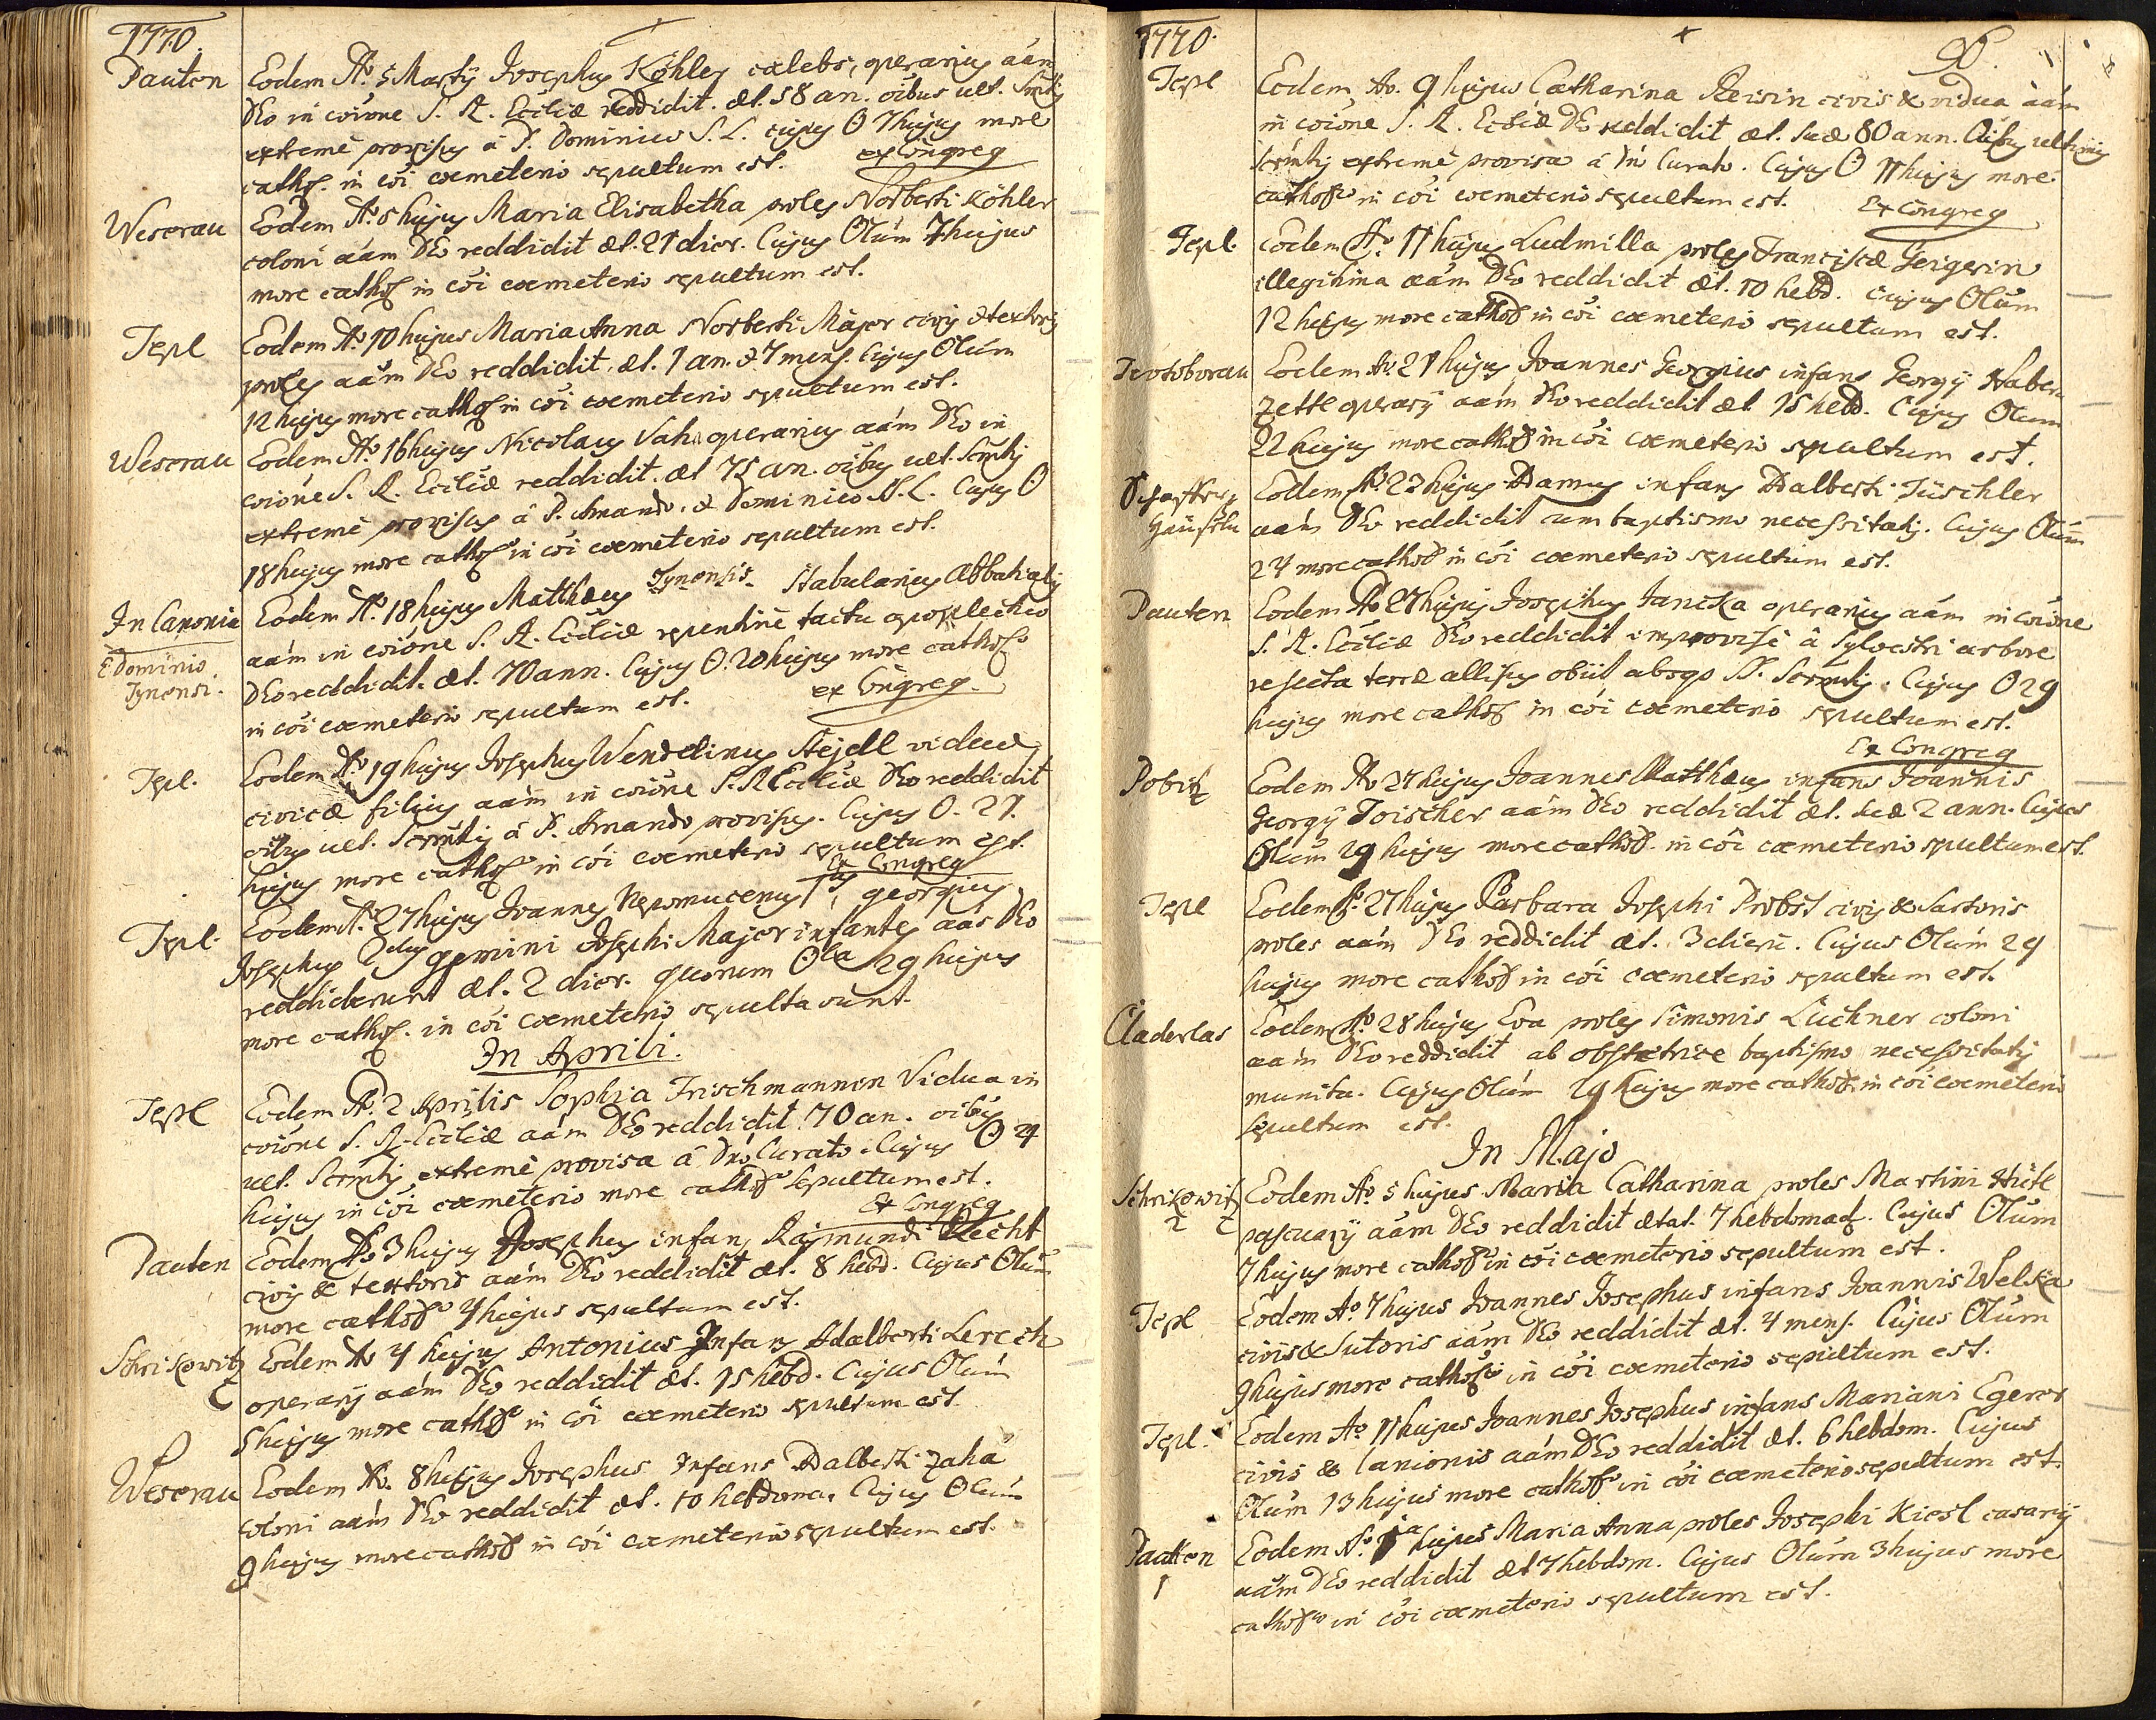 1770.
Pauten
Eodem Aº 5 Martÿ Josephus Köhler cælebs, operarius aãm
DEo in coiõne S. R. Eccliæ reddidit. æt. 58 an. oibus ult. Smtis
extremè provisus â P. Dominico S. L. cujus O 7 hujus more
cathol. in coi cœmeterio sepultum est. ex Congreg
Weserau
Eodem Aº 5 hujus Maria Elisabetha proles Norberti Köhler
coloni aãm DEo reddidit æt. 21 dier. Cujus Olum 7 hujus
more cathol in coi cœmeterio sepultum est.
Tepl
Eodem Aº 10 hujus Maria Anna Norberti Major civis & textoris
proles aãm DEo reddidit, æt. 1 an. & 7 mens. Cujus Olum
12 hujus more cathol in coi cœmeterio sepultum est.
Weserau
Eodem Aº 16 hujus Nicolaus operarius aãm DEo in
coiõne S. R. Eccliæ reddidit. æt 75 an. oibus ult. Scrmtis
extremè provisus â P. Amando, & Dominico S. L. Cujus O
18 hujus more cathol in coi cœmeterio sepultum est.
In Canonia
E Dominio
Tynensi.
Eodem Aº. 18 hujus Matthæus Tynensis Stabularius Abbatialis
aãm in coiõne S. R. Eccliæ repentinè tactu apoplectico
DEo reddidit. æt. 70 ann. Cujus O. 20 hujus more cathol
in coi cœmeterio sepultum est. ex Congreg.
Tepl.
Eodem Aº 19 hujus Josephus Wendelinus Stejdl viduæ
civicæ filius aãm in coiõne S. R. Eccliæ DEo reddidit
oibus ult. Scrmtis â P. Amando provisus. Cujus O. 21.
hujus more cathol in coi cœmeterio sepultum est.
Ex Congreg
Tepl.
Eodem Aº. 27 hujus Joannes Nepomucenus 1us, Georgius
Josephus 2dus gemini Josephi Major infantes aas DEo
reddiderunt æt. 2 dier. quorum Ola 29 hujus
more cathol. in coi cœmeterio sepulta sunt.
In Aprili.
Tepl
Eodem Aº. 2 Aprilis Sophia Frischmannin Vidua in
coiõne S. R. Eccliæ aãm DEo reddidit 70 an. oibus
ult. Scrmtis extremè provisa â Dno Curato. Cujus O 4
hujus in coi cœmeterio more cathol sepultum est.
Ex Congreg
Pauten
Eodem Aº 3 hujus Josephus infans Rajmundi
civis & textoris aãm DEo reddidit æt. 8 hebd. Cujus Olum
more cathol 4 hujus sepultum est.
Schrikowitz
Eodem Aº 4 hujus Antonius Infans Adalberti Lerch
operarÿ aãm DEo reddidit æt. 15 hebd. Cujus Olum
5 hujus more cathol in coi cœmeterio sepultum est.
Weserau
Eodem Aº. 8 hujus Josephus Infans Adalberti Zaha
coloni aãm DEo reddidit æt. 10 hebdoma. Cujus Olum
9 hujus more cathol in coi cœmeterio sepultum est.
1770.
Tepl
Eodem Aº. 9 hujus Catharina Reisin civis & vidua aãm
in coiõne S. R. Eccliæ DEo reddidit æt. suæ 80 ann. Oibus ultimis
Scrmtis extremè provisa â Dno Curato. Cujus O 11 hujus more
cathol in coi cœmeterio sepultum est. Ex Congreg
Tepl.
Eodem Aº. 11 hujus Ludmilla proles Franciscæ Geigerin
illegitima aãm DEo reddidit æt. 10 hebd. Cujus Olum
12 hujus more cathol in coi cœmeterio sepultum est.
Eodem Aº. 21 hujus Joannes Georgius infans Georgÿ Haber
Zettl operarÿ aãm DEo reddidit æt 15 hebd. Cujus Olum
22 hujus more cathol in coi cœmeterio sepultum est.
Eodem Aº. 23 hujus Adamus infans Adalberti Tüschler
aãm DEo reddidit cum baptismo necessitatis. Cujus Olum
24 more cathol in coi cœmeterio sepultum est.
Pauten
Eodem Aº 27 hujus Josephus Janicka operarius aãm in coiõne
S. R. Eccliæ DEo reddidit improvisè â Sylvestri arbore
rejecta terræ allisus obiit absqs SS. Scrmtis. Cujus O 29
hujus more cathol in coi cœmeterio sepultum est.
Ex Congreg
Pobitz
Eodem Aº 27 hujus Joannes Matthæus infans Joannis
Georgÿ Toischer aãm DEo reddidit æt. suæ 2 ann. Cujus
Olum 29 hujus more cathol. in coi cœmeterio sepultum est.
Tepl
Eodem Aº. 27 hujus Barbara Josephi Probst civis & Sartoris
proles aãm DEo reddidit æt. 3 dieru. Cujus Olum 29
hujus more cathol in coi cœmeterio sepultum est.
Claderlas
Eodem Aº. 28 hujus Eva proles Simonis Lüchner coloni
aãm DEo reddidit ab obstetrice baptismo necessitatis
munita. Cujus Olum 29 hujus more cathol in coi cœmeterio
sepultum est.
In Majo
Schrikowitz
Eodem Aº. 5 hujus Maria Catharina proles Martini Hütl
pascuarÿ aãm DEo reddidit ætat. 7 hebdomad. Cujus Olum
7 hujus more cathol in coi cœmeterio sepultum est.
Tepl
Eodem Aº. 7 hujus Joannes Josephus infans Joannis Welska
civis & Sutoris aãm DEo reddidit æt. 4 mens. Cujus Olum
9 hujus more cathol in coi cœmeterio sepultum est.
Tepl.
Eodem Aº 11 hujus Joannes Josephus infans Mariani Egerer
civis & lanionis aãm DEo reddidit æt. 6 hebdom. Cujus
Olum 13 hujus more cathol in coi cœmeterio sepultum est.
Pauten
Eodem Aº. 1a hujus Maria Anna proles Josephi Kiesl casarÿ
aãm DEo reddidit æt 7 hebdom. Cujus Olum 3 hujus more
cathol in coi cœmeterio sepultum est.